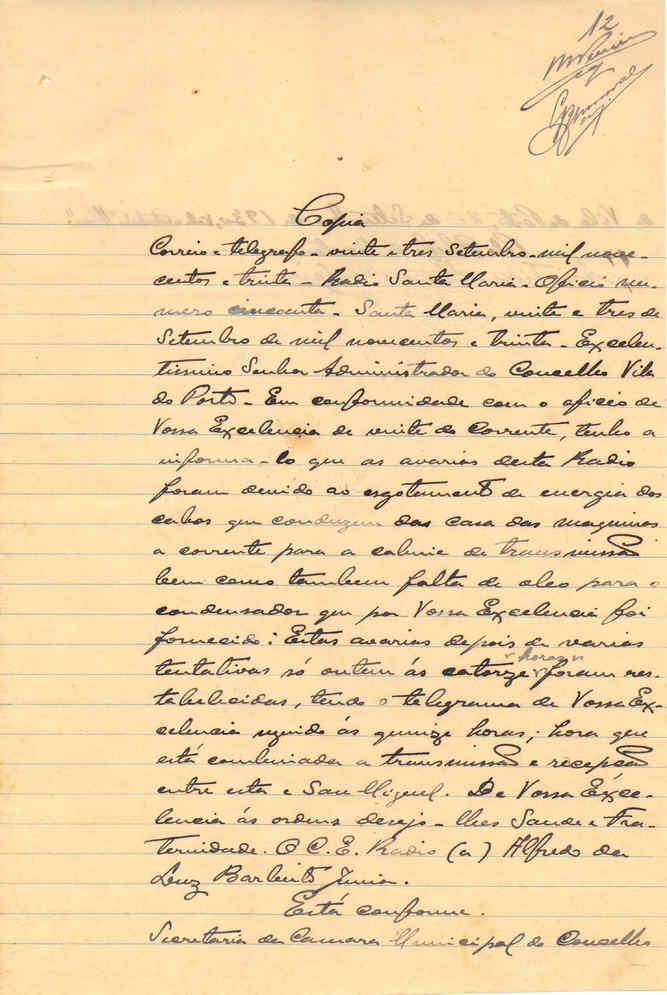 12
Copia
Correio e telegrafo - vinte e tres Setembro - mil nove-
centos e trinta - Radio Santa Maria - Oficio nu-
mero cincoenta - Santa Maria, vinte e tres de
Setembro de mil novecentos e trinta - Excelen-
tissimo Senhor Administrador do Concelho Vila
do Porto - Em conformidade com o oficio de
Vossa Excelencia de vinte do corrente, tenho a
informa-lo que as avarias desta Radio
foram devido ao esgotamento de energia dos
cabos que conduzem das casa das maquinas
a corrente para a cabine de transmissão
bem como tambem falta de oleo para o
condensador que por Vossa Excelencia foi
fornecido; Estas avarias depois de varias
tentativas só ontem ás catorze horas foram res-
tabelecidas, tendo o telegrama de Vossa Ex-
celencia seguido ás quinze horas; hora que
está combinada a transmissão e recepção
entre esta e San Miguel. De Vossa Exce-
lencia ás ordens desejo-lhes Saude e Fra-
ternidade. O C. E. Radio (a) Alfredo da
Luz Barbeito Junior.
Está conforme.
Secretaria da Camara Municipal do Concelho